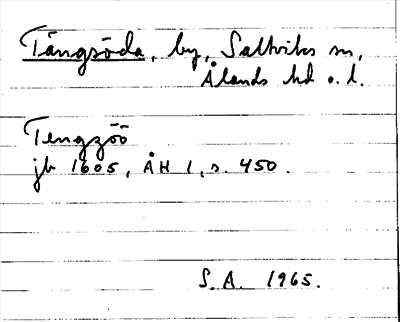 Tängsöda, by, Saltviks sn,
Ålands hd o. l.
Tengzöö
jb 1605, ÅH 1, s. 450.
S.A. 1965.